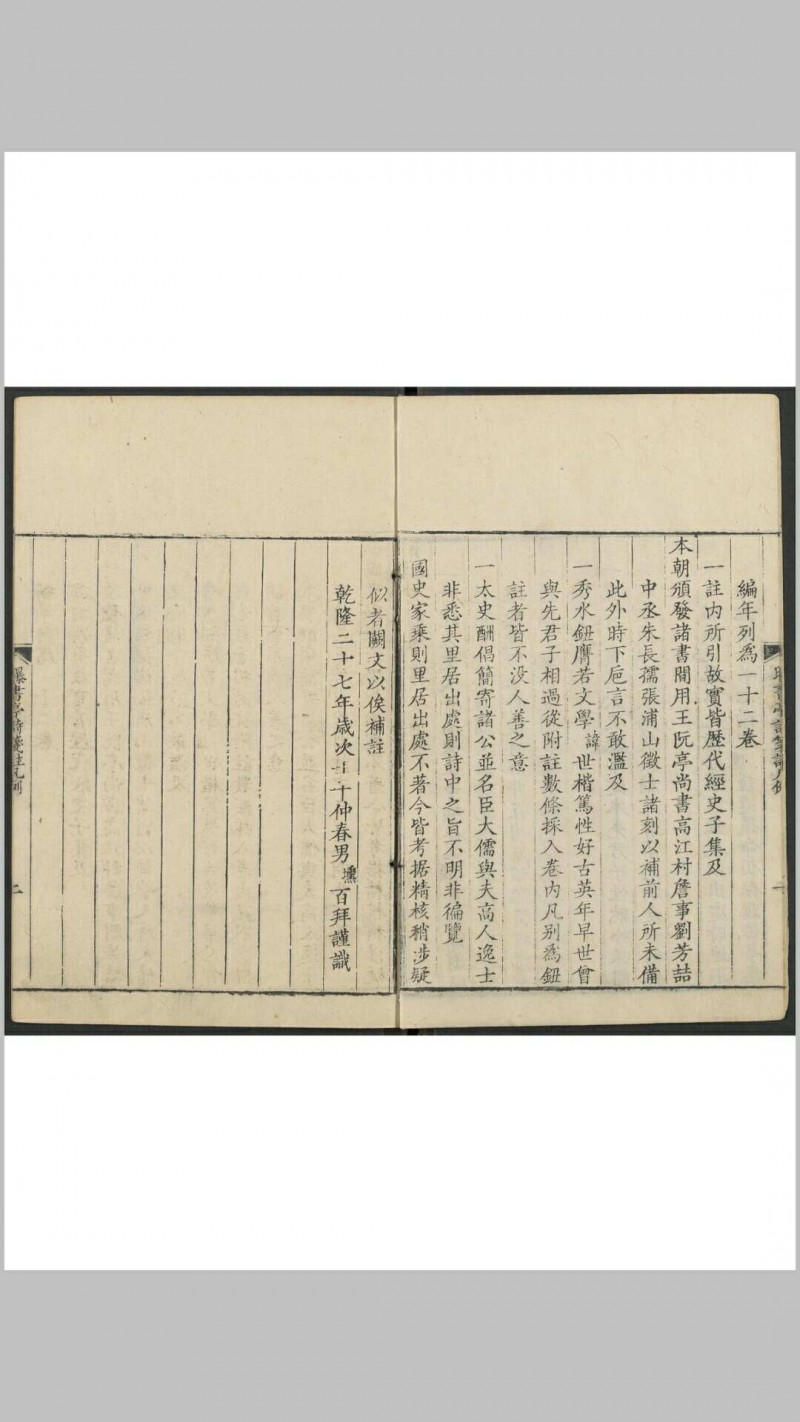 編年列為一十二卷
一註內所引故實皆歷代經史子集及
本朝頒發諸書間用王阮亭尚書高江村詹事劉芳喆
中丞朱長孺張浦山徵士諸刻以補前人所未備
此外時下巵言不敢濫及
一秀水鈕膺若文學諱世楷篤性好古英年早世曾
與先君子相過從附註數條採入卷內凡別為鈕
註者皆不没人善之意
一太史酬倡簡寄諸公並名臣大儒與夫高人逸士
非悉其里居出處則詩中之旨不明非徧覽
國史家乘則里居出處不著今皆考据精核稍涉疑
似者闕文以俟補註
乾隆二十七年歲次壬午仲春男壎百拜謹識
曝書亭詩箋註凡例
二